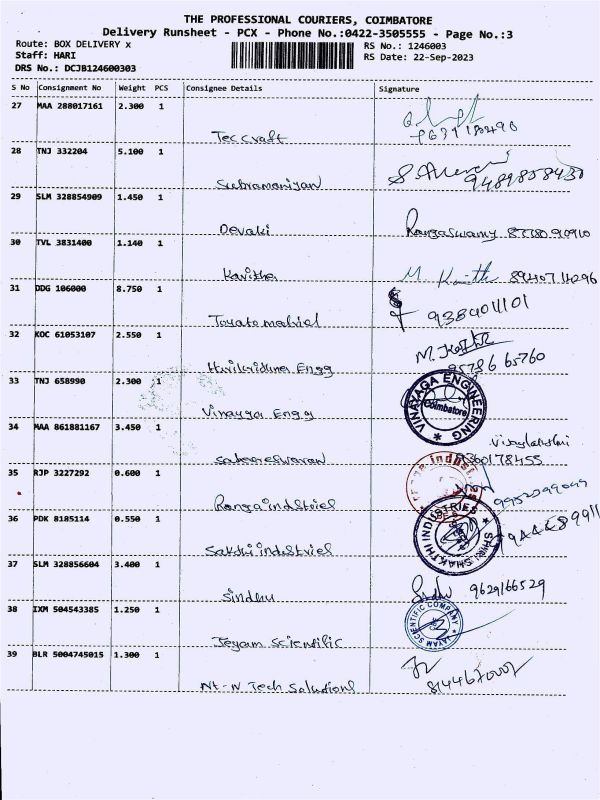 THE PROFESSIONAL COURIERS, COIMBATORE
Delivery Runsheet - PCX - Phone No.:0422-3505555 - Page No.:3
Route: BOX DELIVERY x
RS No.: 1246003
Staff: HARI
RS Date: 22-Sep-2023
DRS No.: DCJB124600303
S No Consignment No Weight PCS Consignee Details Signature
27 MAA 288017161 2.300 1
Teccraft
28 TNJ 332204 5.100 1
Subramaniyan
29 SLM 328854909 1.450 1
Devaki Rangaswamy
30 TVL 3831400 1.140 1
Kavitha
31 DDG 106000 8.750 1
9384011101
32 KOC 61053107 2.550 1
Engg 95786 65760
33 TNJ 658990 2.300 1
Vinayga Engg VINAYAGA ENGINEERING Coimbatore
34 MAA 861881167 3.450 1
35 RJP 3227292 0.600 1
Ranga industriel
36 PDK 8185114 0.550 1
Sakthi industriel SHRI SHAKTHI INDUSTRIES
37 SLM 328856604 3.400 1
Sindhu 9629166529
38 IXM 504543385 1.250 1
Jeyam Scientific JAYAM SCIENTIFIC COMPANY
39 BLR 5004745015 1.300 1
Nt-N Tech Solutions